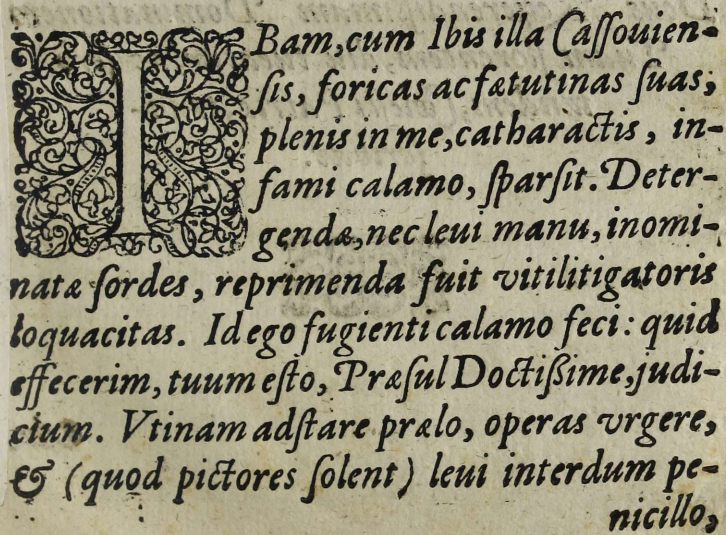 IBam, cum Ibis illa Caſſouien-
ſis, foricas ac fætutinas ſuas,
plenis in me, catharactis, in-
fami calamo, ſparſit. Deter-
gendæ, nec leui manu, inomi-
natæ ſordes, reprimenda fuit vitilitigatoris
loquacitas. Id ego fugienti calamo feci: quid
effecerim, tuum eſto, Præſul Doctiſsime, judi-
cium. Vtinam adſtare prælo, operas vrgere,
& (quod pictores ſolent) leui interdum pe-
nicillo,